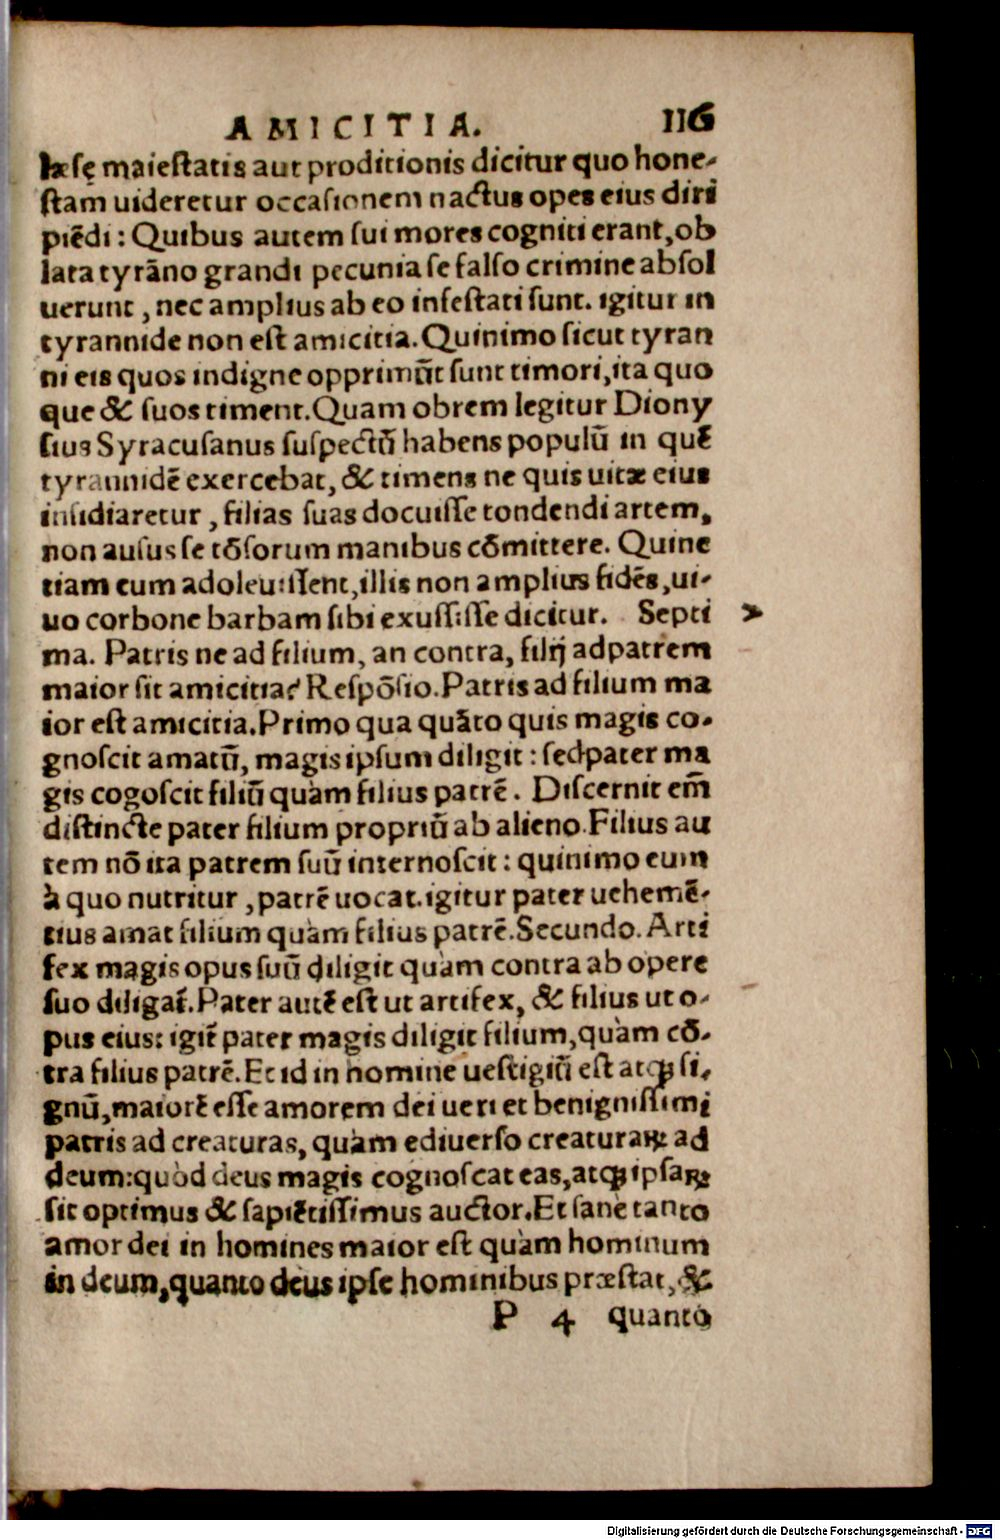 AMICITIA. 116
læsę maiestatis aut proditionis dicitur quo hone-
stam uideretur occasionem nactus opes eius diri
piēdi: Quibus autem sui mores cogniti erant, ob
lata tyrāno grandi pecunia se falso crimine absol
uerunt, nec amplius ab eo infestati sunt. igitur in
tyrannide non est amicitia. Quinimo sicut tyran
ni eis quos indigne opprimūt sunt timori, ita quo
que & suos timent. Quam obrem legitur Diony
sius Syracusanus suspectū habens populū in quē
tyrannidē exercebat, & timens ne quis uitæ eius
insidiaretur, filias suas docuisse tondendi artem,
non ausus se tōsorum manibus cōmittere. Quine
tiam cum adoleuissent, illis non amplius fidēs, ui-
uo corbone barbam sibi exussisse dicitur. Septi
ma. Patris ne ad filium, an contra, filij ad patrem
maior sit amicitia? Respōsio. Patris ad filium ma
ior est amicitia. Primo qua quāto quis magis co-
gnoscit amatū, magis ipsum diligit: sed pater ma
gis cogoscit filiū quàm filius patrē. Discernit em̄
distincte pater filium propriū ab alieno. Filius au
tem nō ita patrem suū internoscit: quinimo eum
à quo nutritur, patrē uocat. igitur pater uehemē-
tius amat filium quàm filius patrē. Secundo. Arti
fex magis opus suū diligit quàm contra ab opere
suo diligat̄. Pater autē est ut artifex, & filius ut o-
pus eius: igit̄ pater magis diligit filium, quàm cō-
tra filius patrē. Et id in homine uestigiū est atqꝫ si-
gnū, maiorē esse amorem dei ueri et benignissimi
patris ad creaturas, quàm ediuerso creaturaꝝ ad
deum: quòd deus magis cognoscat eas, atqꝫ ipsaꝝ
sit optimus & sapiētissimus auctor. Et sanè tanto
amor dei in homines maior est quàm hominum
in deum, quanto deus ipse hominibus præstat, &
P 4 quanto
Digitalisierung gefördert durch die Deutsche Forschungsgemeinschaft - DFG